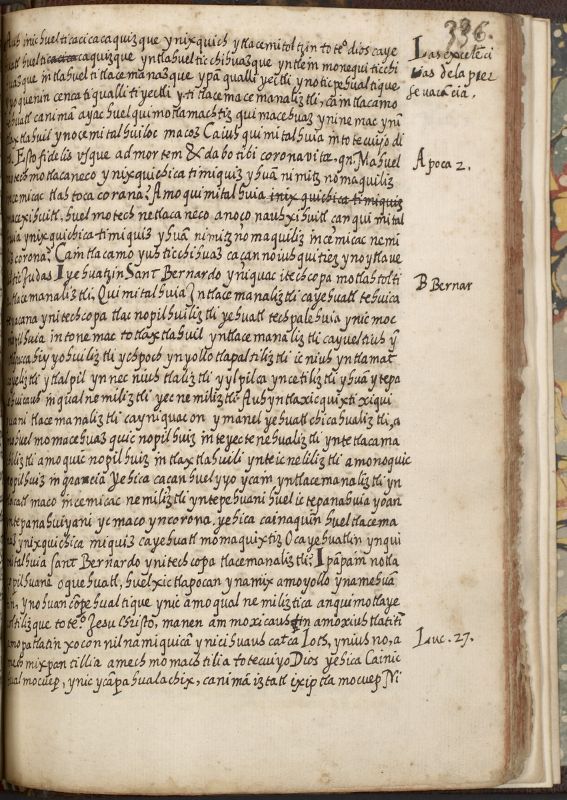 336.
Las excelẽci
as de la per
seuerãcia.
Auh inic huel ticacicacaquizque ynixquich ytlacemitoltzin toteº dios caye
huatl huel ticaquizque yntlahuel ticchihuazque yntlein monequi ticchi
huazque intlahuel titlacemanazque ypã qualli yectli ynoticpehualtique
yoquenin cenca tiqualli tiyectli y ti tlacemacemanaliztli, cãintlacamo
yehuatl canimã ayac huel quimotlamachtiz quimacehuaz ynine mac ynin
tlaxtlahuil ynocemitalhuiloc macoz Caiuh quimitalhuia intotecuiyo di
os. Esto fidelis vsque ad mortem & dabo tibi coronã vitæ. qn. Ma huel
motech motlacaneco ynixquichica timiquiz yhuã nimitznomaquiliz
incemicac tlahtoca corona? Amo quimitalhuia inixquichica timiquiz
macexihuitl, huel motech netlacaneco anoço nauhxihuitl can quimital
huia ynixquichica timiquiz yhuã nimitznomaquiliz incemicac nemi
liz corona? Cãintlacamo yuh ticchihuaz cacannoiuh quitiez ynoytlaue
liltic Judas Iyehuatzin Sant Bernardo yniquac itechcopa motlahtolti
tlacemanaliztli. Quimitalhuia Intlacemanaliztli cayehuatl tehuica
teyacana ynitechcopa tlacnopilhuiliztli yehuatl techpalehuia ynic moc
nopilhuia intonemac totlaxtlahuil yntlacemanaliztli cayueltiuh ỹ
tlapaccaihiyyohuiliztli ychpoch ynyollotlapaltiliztli icniuh yntlamat
cayeliztli ytlalpil ynnecniuhtlaliztli yylpilca yncetiliztli yhuã ytepa
lehuicauh inqualnemiliztli yecnemiliztli Auh yntlaxicquixti xiqui
huani tlacemanaliztli cayniquac on ymanel yehuatl chicahualiztli, a
mohuel momacehuaz quicnopilhuiz inteyectenehualiztli yntetlacama
chiliztli amo quicnopilhuiz intlaxtlahuili ynteicneliliztli amono quic
nopilhuiz in gracia Yehica cacan huel yyo ycam yntlacemanaliztli yn
ynmaco incemicac nemiliztli yntepehuani huel ictepanahuia yoan
intepanahuiyani yc maco yncorona, yehica cainaquin huel tlacema
naz ynixquichica miquiz cayehuatl momaquixtiz O cayehuatlin ynqui
mitalhuia Sant Bernardo ynitechcopa tlacemanaliztli? Ipãpain notla
çopilhuané oquehuatl, huelxictlapocan ynamix amoyollo ynamehuã
tin, ynohuancõpehualtique ynic amo qualnemiliztica anquimotlaye
coltilizque toteº Jesu Christo, manen ãmomoxicauhtin amoxiuhtlatiti
amopatlatin xocon nilnamiquicã ynicihuauh catca Loth, yniuh no, a
mechmixpantillia amechmomachstilia totecuiyo Dios yehica Cainic
hualmocuep, ynic ycãpa hualachix, canimã iztatl ixiptla mocuep Ni
Apoca 2.
B Bernar
Luc. 27.